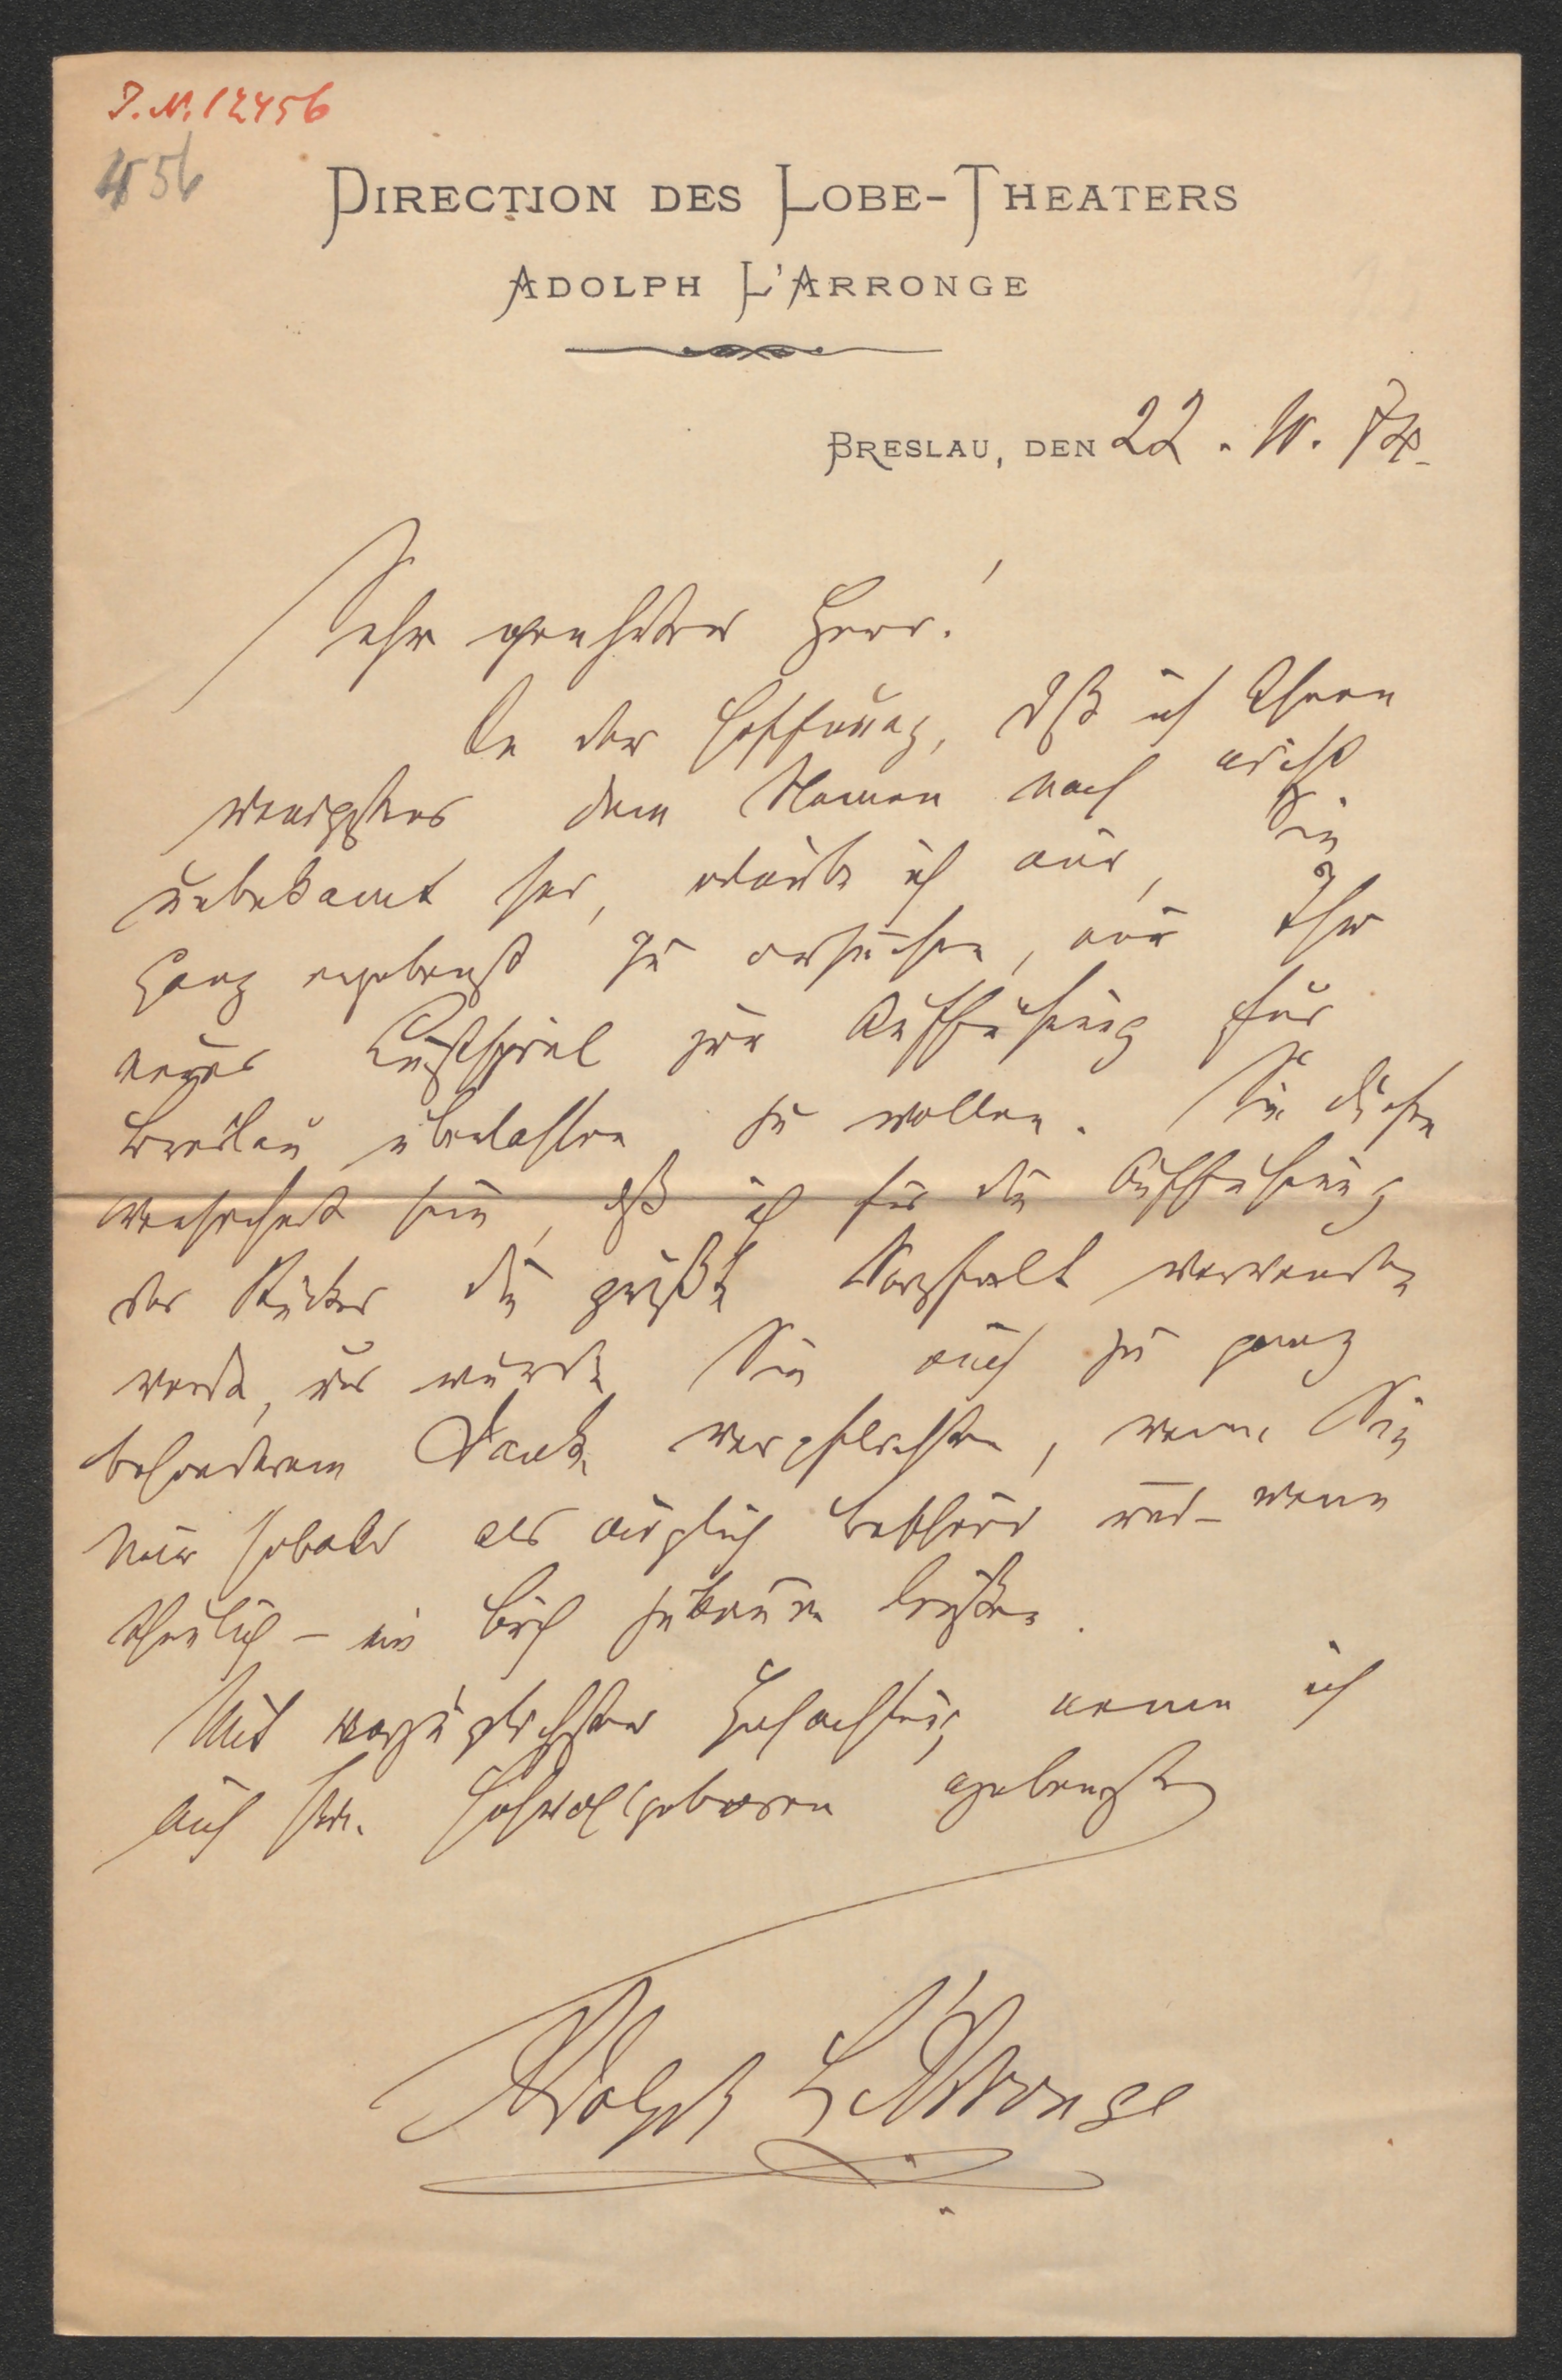 J. N. 12456
456
DIRECTION DES LOBE-THEATERS
ADOLPH L'ARRONGE
BRESLAU, DEN 22. 10. 74.
Sehr geehrter Herr!
In der Hoffnung, daß ich Ihnen
wenigstens dem Namen nach nicht
unbekannt sei, erlaube ich mir, Sie
ganz ergebenst zu ersuchen, mir Ihr
neues Lustspiel zur Aufführung für
Breslau überlassen zu wollen. Sie dürfen
versichert sein, daß ich für die Aufführung
des Stückes die größte Sorgfalt verwenden
werde, und würden Sie mich zu ganz
besonderem Dank verpflichten, wenn Sie
mir sobald als möglich Bescheid und – wenn
thunlich – ein Buch zukommen ließen.
Mit vorzüglichster Hochachtung nenne ich
mich Ew. Hochwohlgeboren ergebenster
Adolph L'Arronge